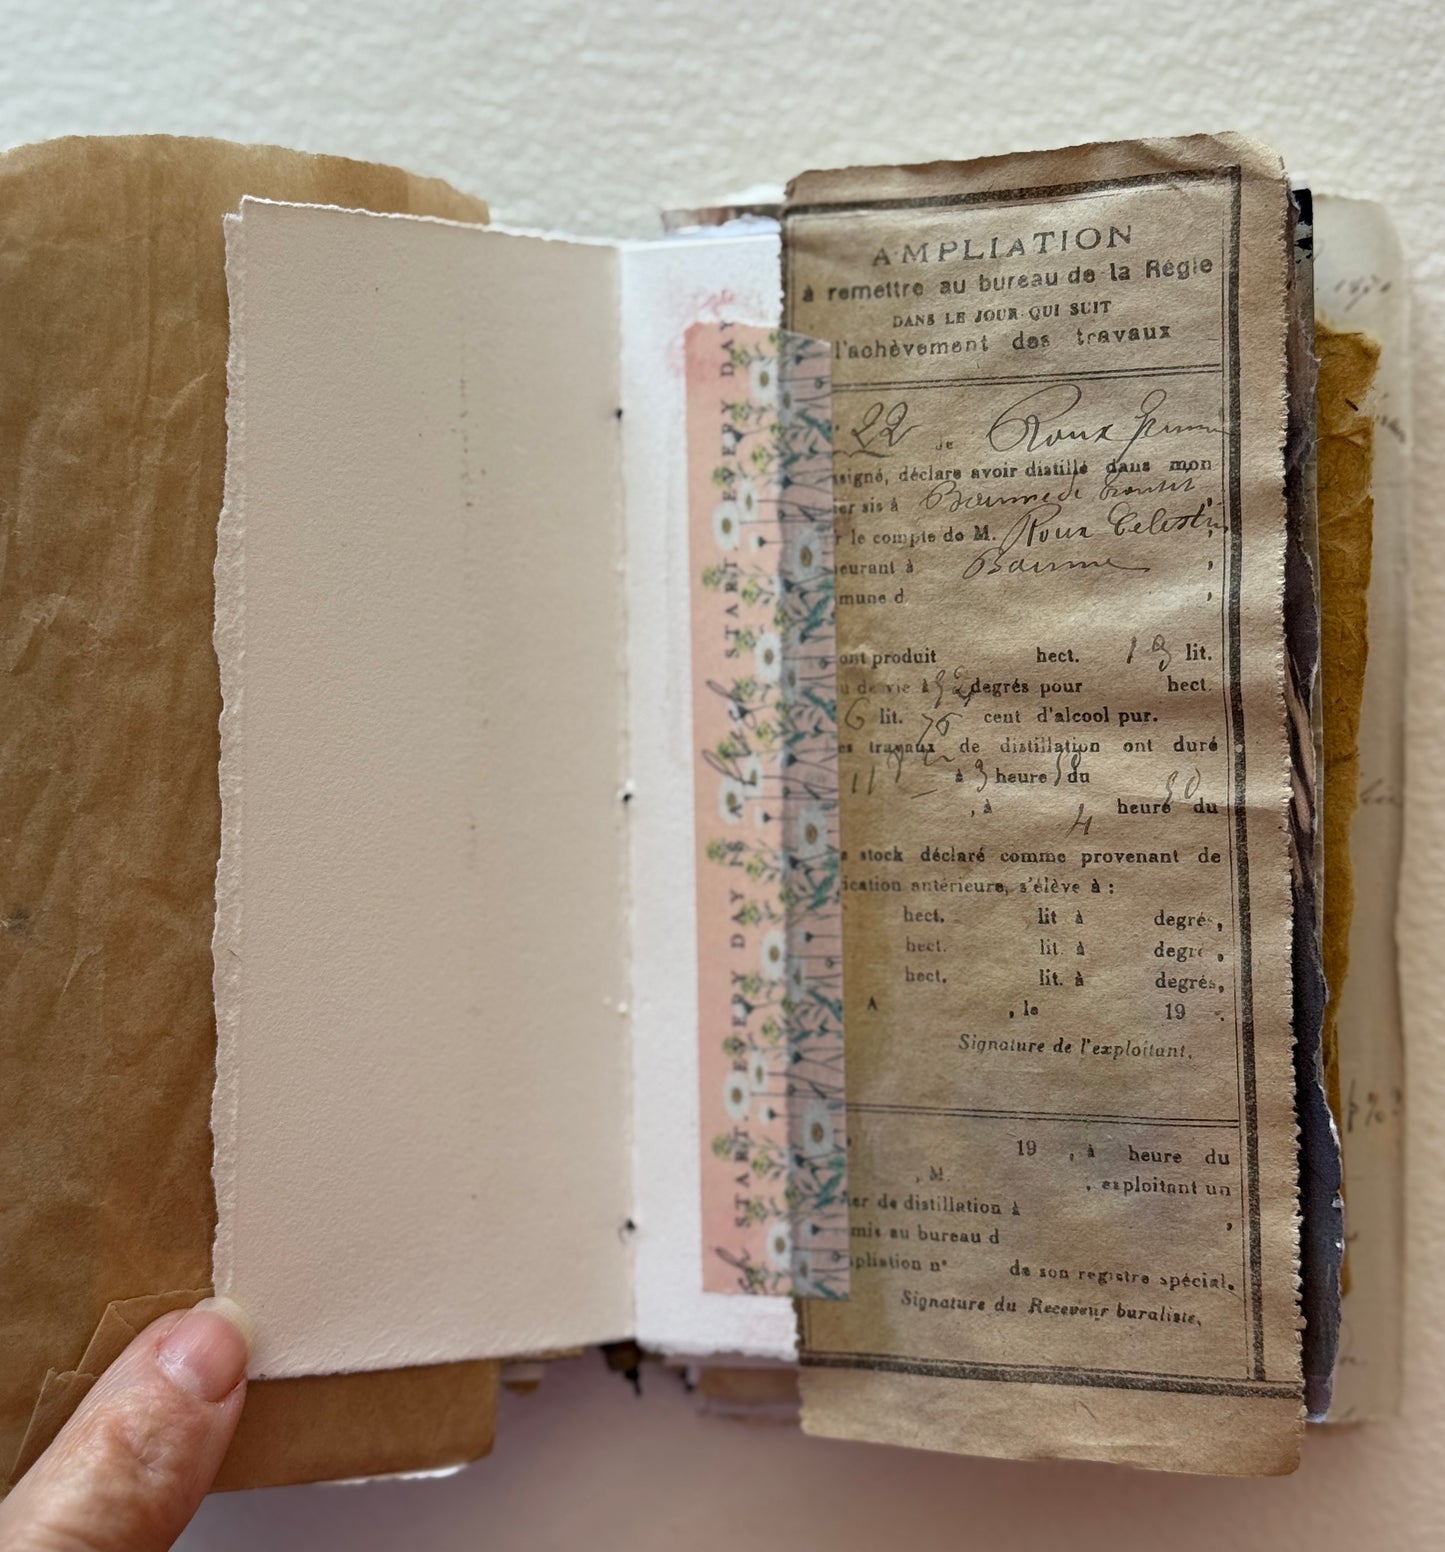 START EVERY DAY AS A fresh START. EVERY DAY
AMPLIATION
à remettre au bureau de la Régie
DANS LE JOUR QUI SUIT
l'achèvement des travaux
22 je Roux
signé, déclare avoir distillé dans mon
er sis à
r le compte de M. Roux Celestin,
eurant à Baume,
mune d,
ont produit hect. 13 lit.
u de vie à 52 degrés pour hect.
6 lit. 76 cent d'alcool pur.
es travaux de distillation ont duré
11 à 3 heure du
, à 4 heure du 30
e stock déclaré comme provenant de
ication antérieure, s'élève à :
hect. lit à degrés,
hect. lit. à degrés,
hect. lit. à degrés,
A , le 19 .
Signature de l'exploitant,
19 , à heure du
, M. , exploitant un
ier de distillation à ,
mis au bureau d
pliation n° de son registre spécial.
Signature du Receveur buraliste,
1870